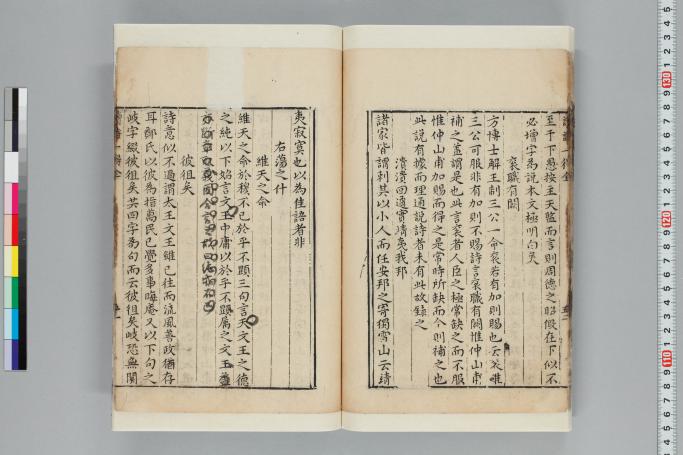 至于下愚按主天監而言則周德之昭假在下似不
必增字為說本文極明白矣
袞職有闕
方博士解王制三公一命袞若有加則賜也云袞唯
三公可服非有加則不賜詩言袞職有闕惟仲山甫
補之蓋謂是也此言袞者人臣之極常缺之而不服
惟仲山甫加賜而得之是常時所缺而今則補之也
此說有據而理通說詩者未有此故錄之
潰潰回遹實靖夷我邦
諸家皆謂刺其以小人而任安邦之寄獨雪山云靖
夷寂寞也以為佳語者非
右蕩之什
維天之命
維天之命於穆不已於乎不顯三句言天文王之德
之純以下始言文王中庸以於乎不顯屬之文王蓋
彼徂矣
詩意似不過謂太王文王雖已往而流風善政猶存
耳鄭氏以彼為指萬民已覺多事晦庵又以下句之
岐字綴彼徂矣共四字為句而云彼徂矣岐恐無關